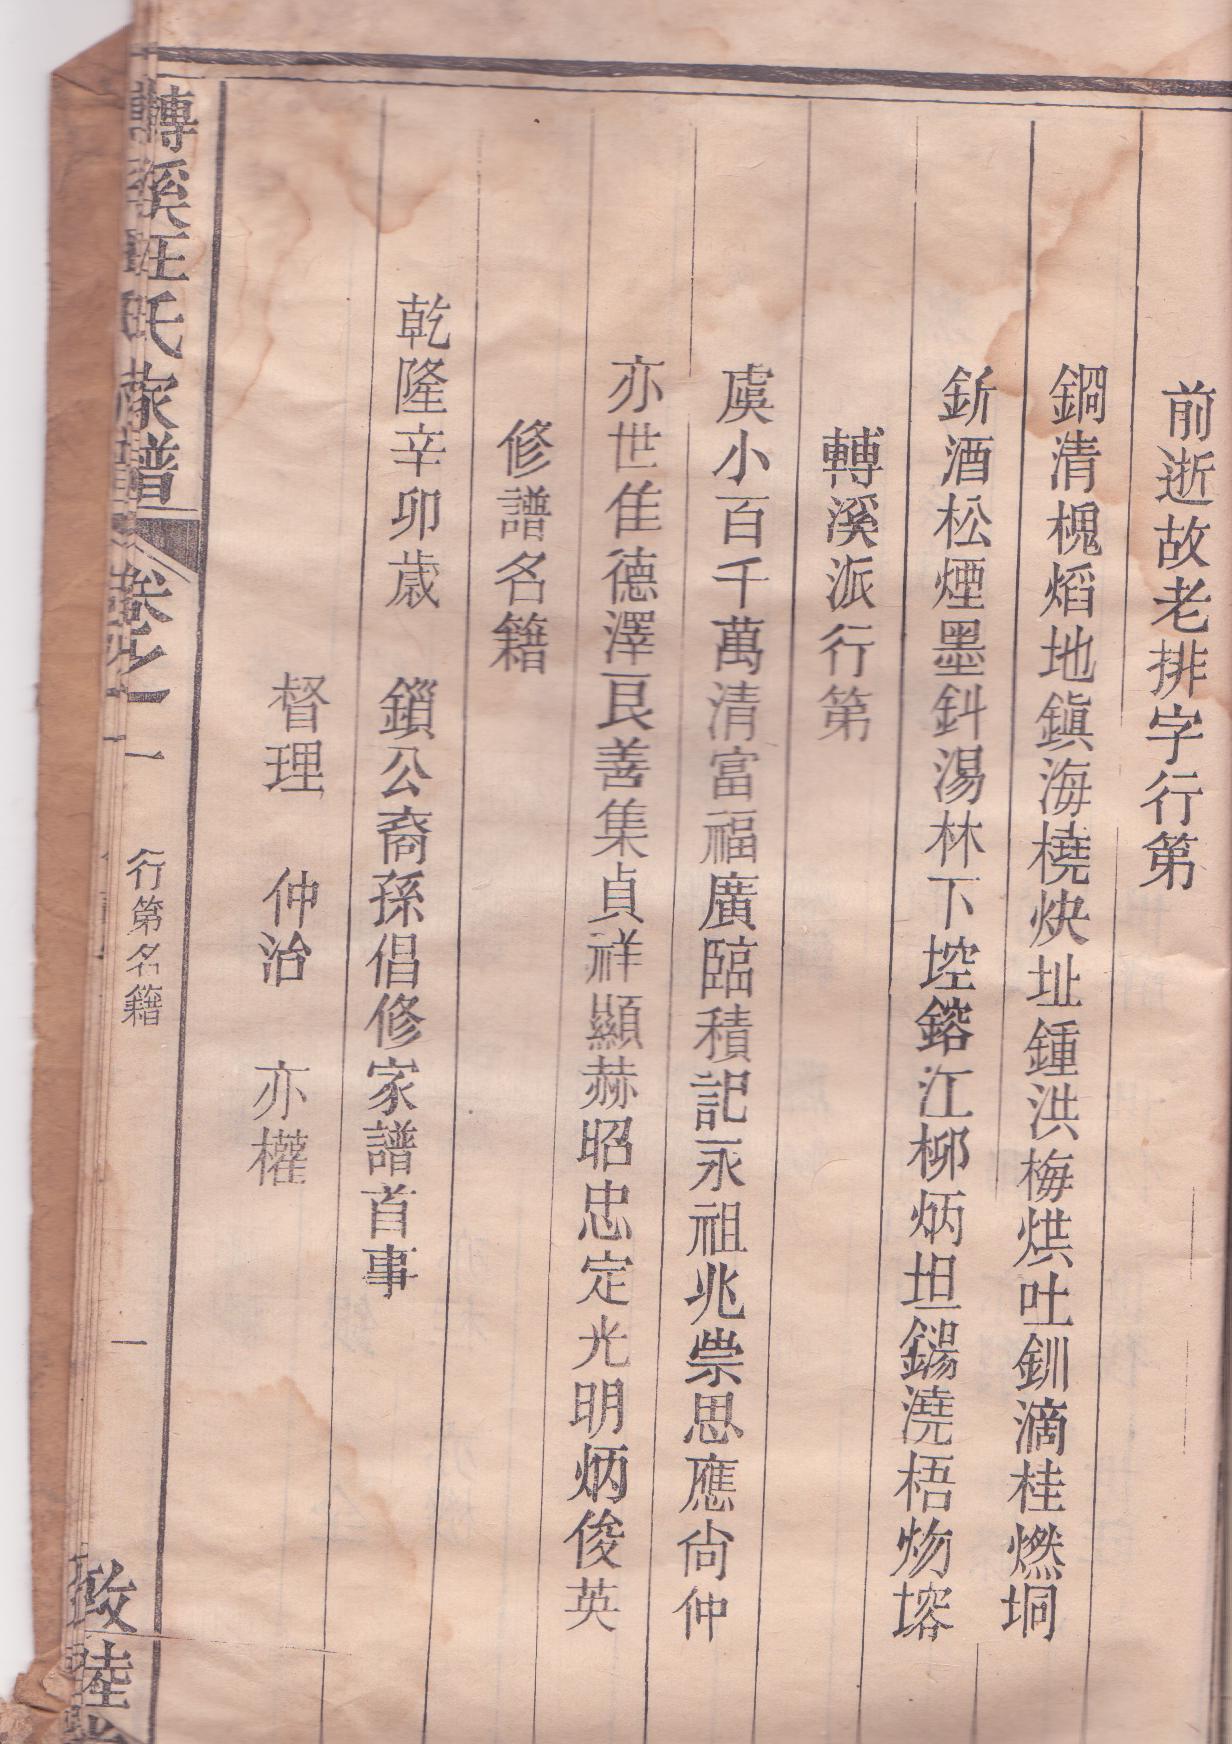 前逝故老排字行第
鍘清槐熖地鎭海橈炔址鍾洪梅烘吐釧滴桂燃垌
釿酒松煙墨鈄湯林下埪鎔江柳炳坦鍚澆梧炀塎
轉溪派行第
虞小百千萬清富福廣臨積記永祖兆崇思應尙仲
亦世隹德澤艮善集貞祥顯赫昭忠定光明炳俊英
修譜名籍
乾隆辛卯歲
鎦公裔孫倡修家譜首事
督理 仲治 亦權
轉溪汪氏家譜 卷之一 行第名籍 一 敦睦